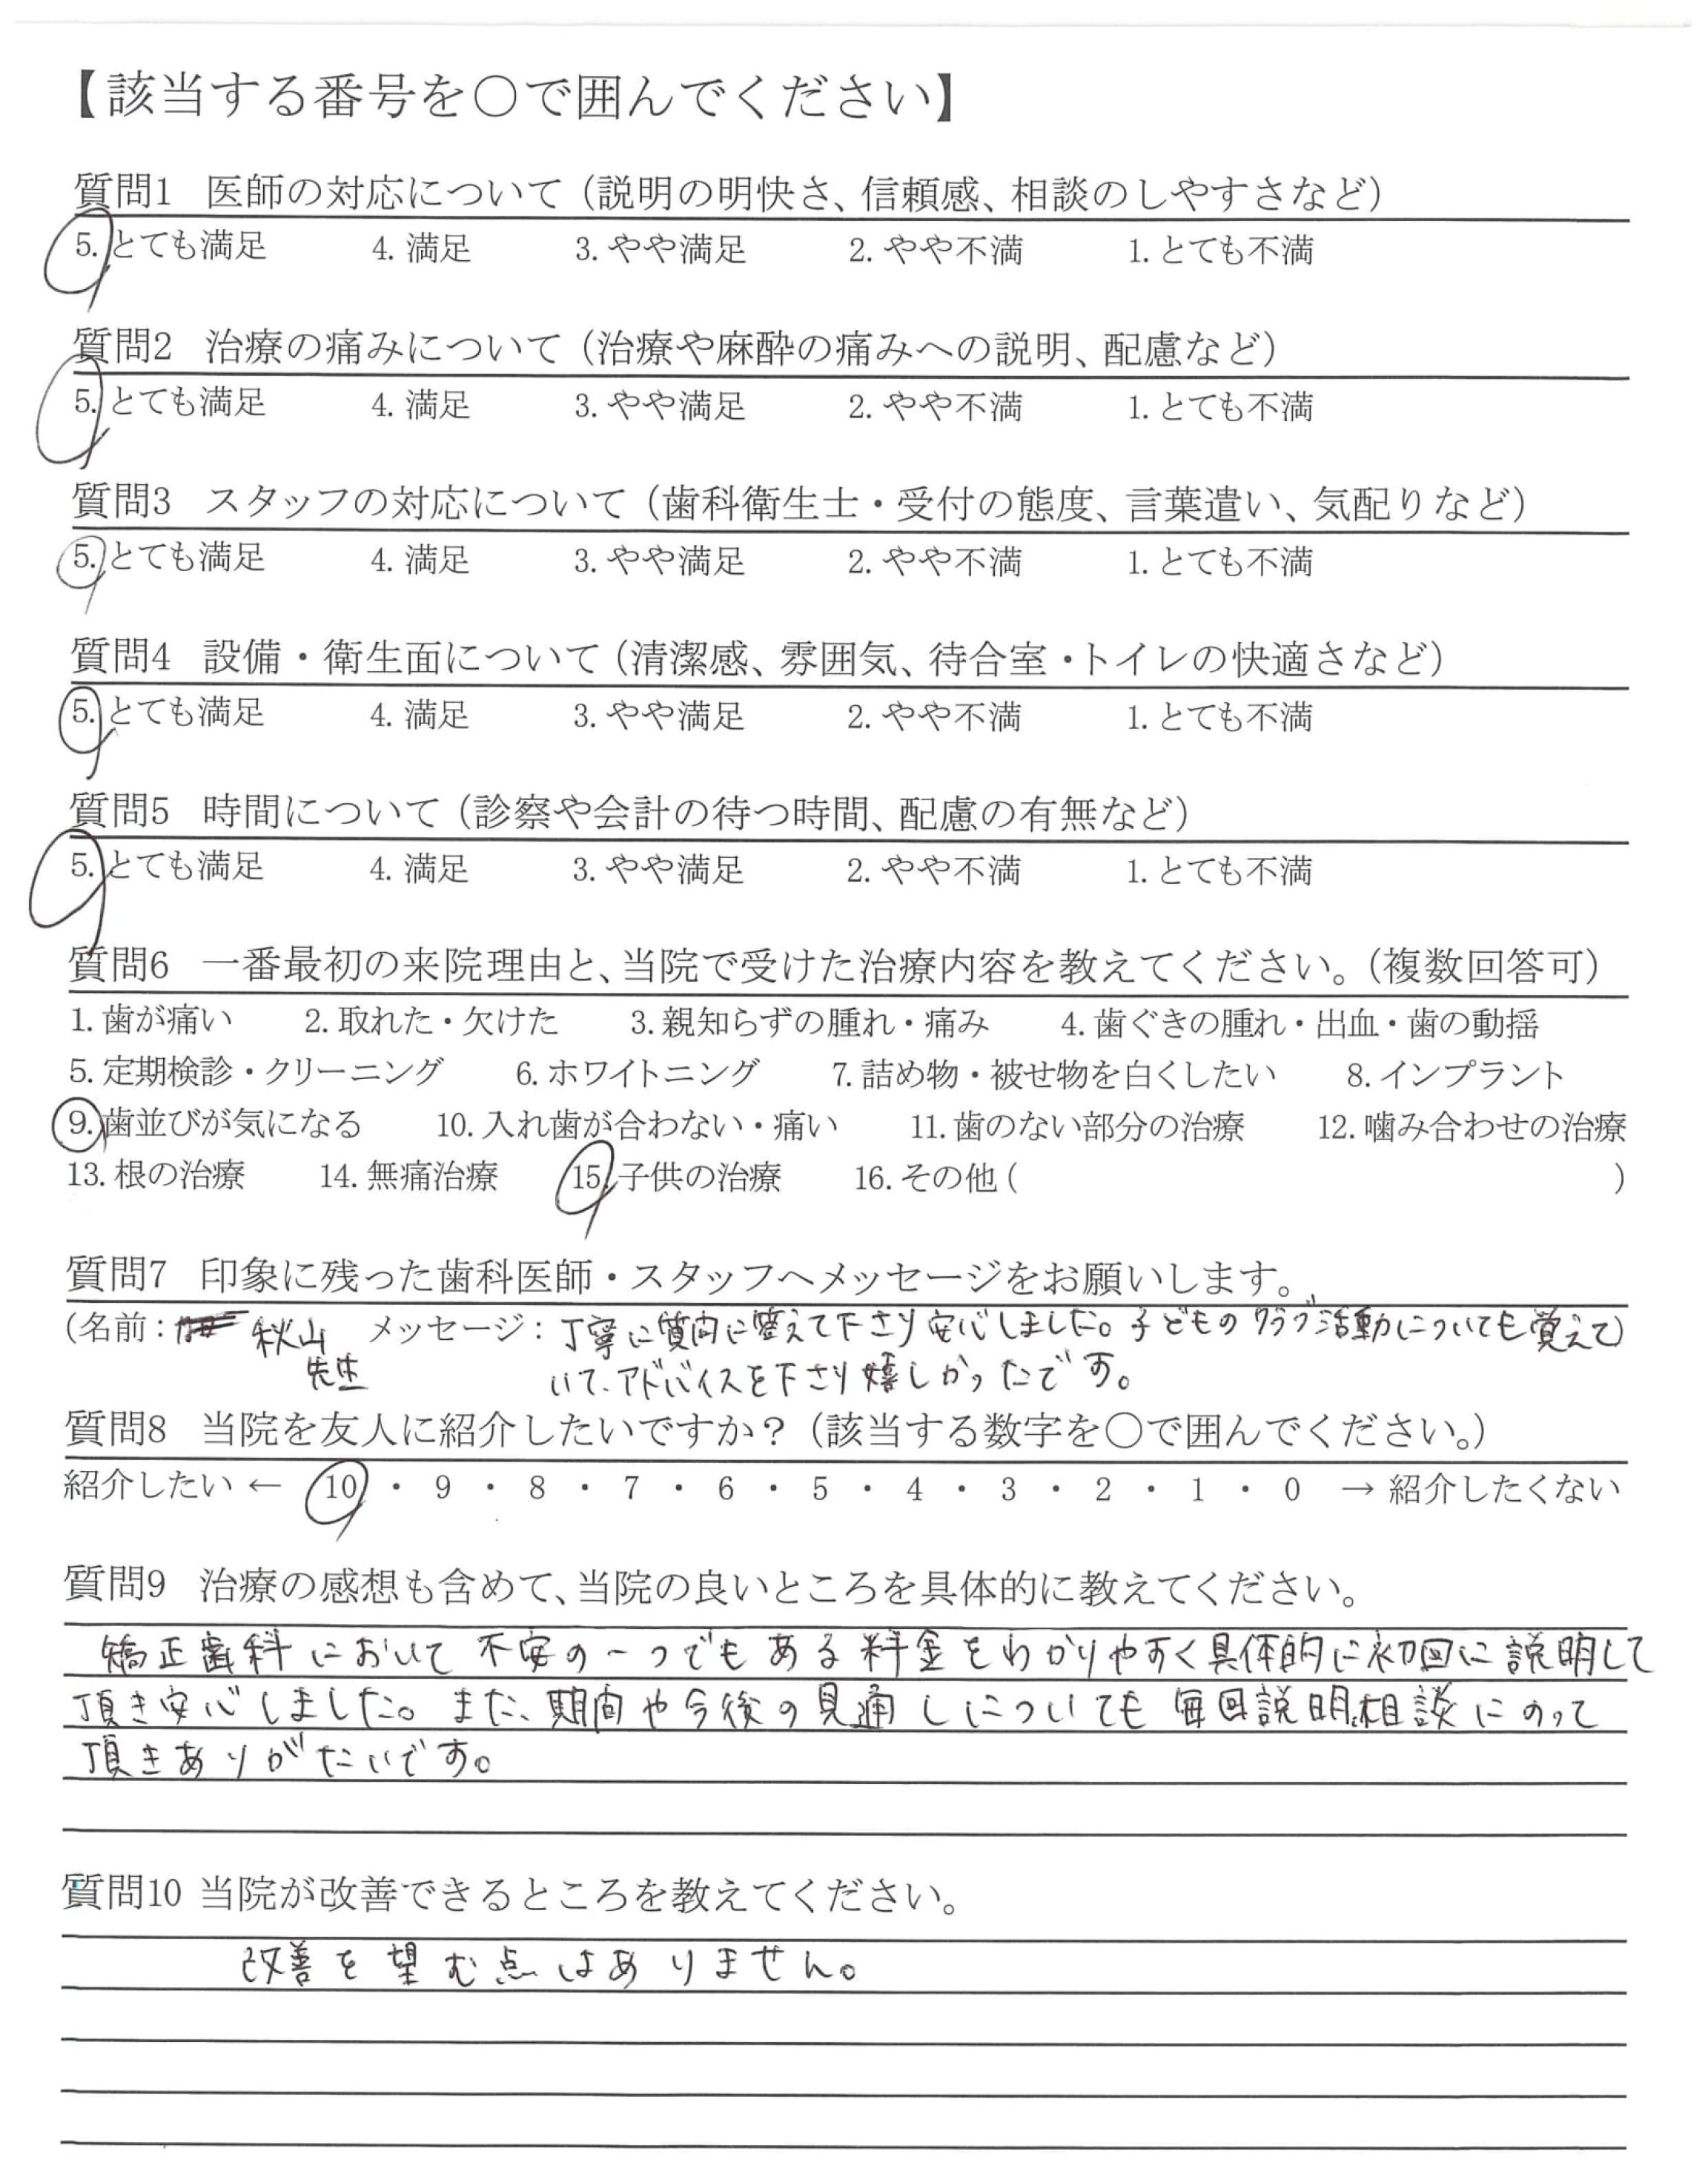 【該当する番号を〇で囲んでください】
質問1 医師の対応について（説明の明快さ、信頼感、相談のしやすさなど）
5. とても満足 4. 満足 3. やや満足 2. やや不満 1. とても不満
質問2 治療の痛みについて（治療や麻酔の痛みへの説明、配慮など）
5. とても満足 4. 満足 3. やや満足 2. やや不満 1. とても不満
質問3 スタッフの対応について（歯科衛生士・受付の態度、言葉遣い、気配りなど）
5. とても満足 4. 満足 3. やや満足 2. やや不満 1. とても不満
質問4 設備・衛生面について（清潔感、雰囲気、待合室・トイレの快適さなど）
5. とても満足 4. 満足 3. やや満足 2. やや不満 1. とても不満
質問5 時間について（診察や会計の待つ時間、配慮の有無など）
5. とても満足 4. 満足 3. やや満足 2. やや不満 1. とても不満
質問6 一番最初の来院理由と、当院で受けた治療内容を教えてください。（複数回答可）
1. 歯が痛い 2. 取れた・欠けた 3. 親知らずの腫れ・痛み 4. 歯ぐきの腫れ・出血・歯の動揺
5. 定期検診・クリーニング 6. ホワイトニング 7. 詰め物・被せ物を白くしたい 8. インプラント
9. 歯並びが気になる 10. 入れ歯が合わない・痛い 11. 歯のない部分の治療 12. 噛み合わせの治療
13. 根の治療 14. 無痛治療 15. 子供の治療 16. その他（ ）
質問7 印象に残った歯科医師・スタッフへメッセージをお願いします。
（名前： 秋山 メッセージ：丁寧に質問に答えて下さり安心しました。子どものクラブ活動についても覚えて）
先生 いて、アドバイスを下さり嬉しかったです。
質問8 当院を友人に紹介したいですか？（該当する数字を〇で囲んでください。）
紹介したい ← 10 ・ 9 ・ 8 ・ 7 ・ 6 ・ 5 ・ 4 ・ 3 ・ 2 ・ 1 ・ 0 → 紹介したくない
質問9 治療の感想も含めて、当院の良いところを具体的に教えてください。
矯正歯科において不安の一つでもある料金をわかりやすく具体的に初回に説明して
頂き安心しました。また、期間や今後の見通しについても毎回説明、相談にのって
頂きありがたいです。
質問10 当院が改善できるところを教えてください。
改善を望む点はありません。